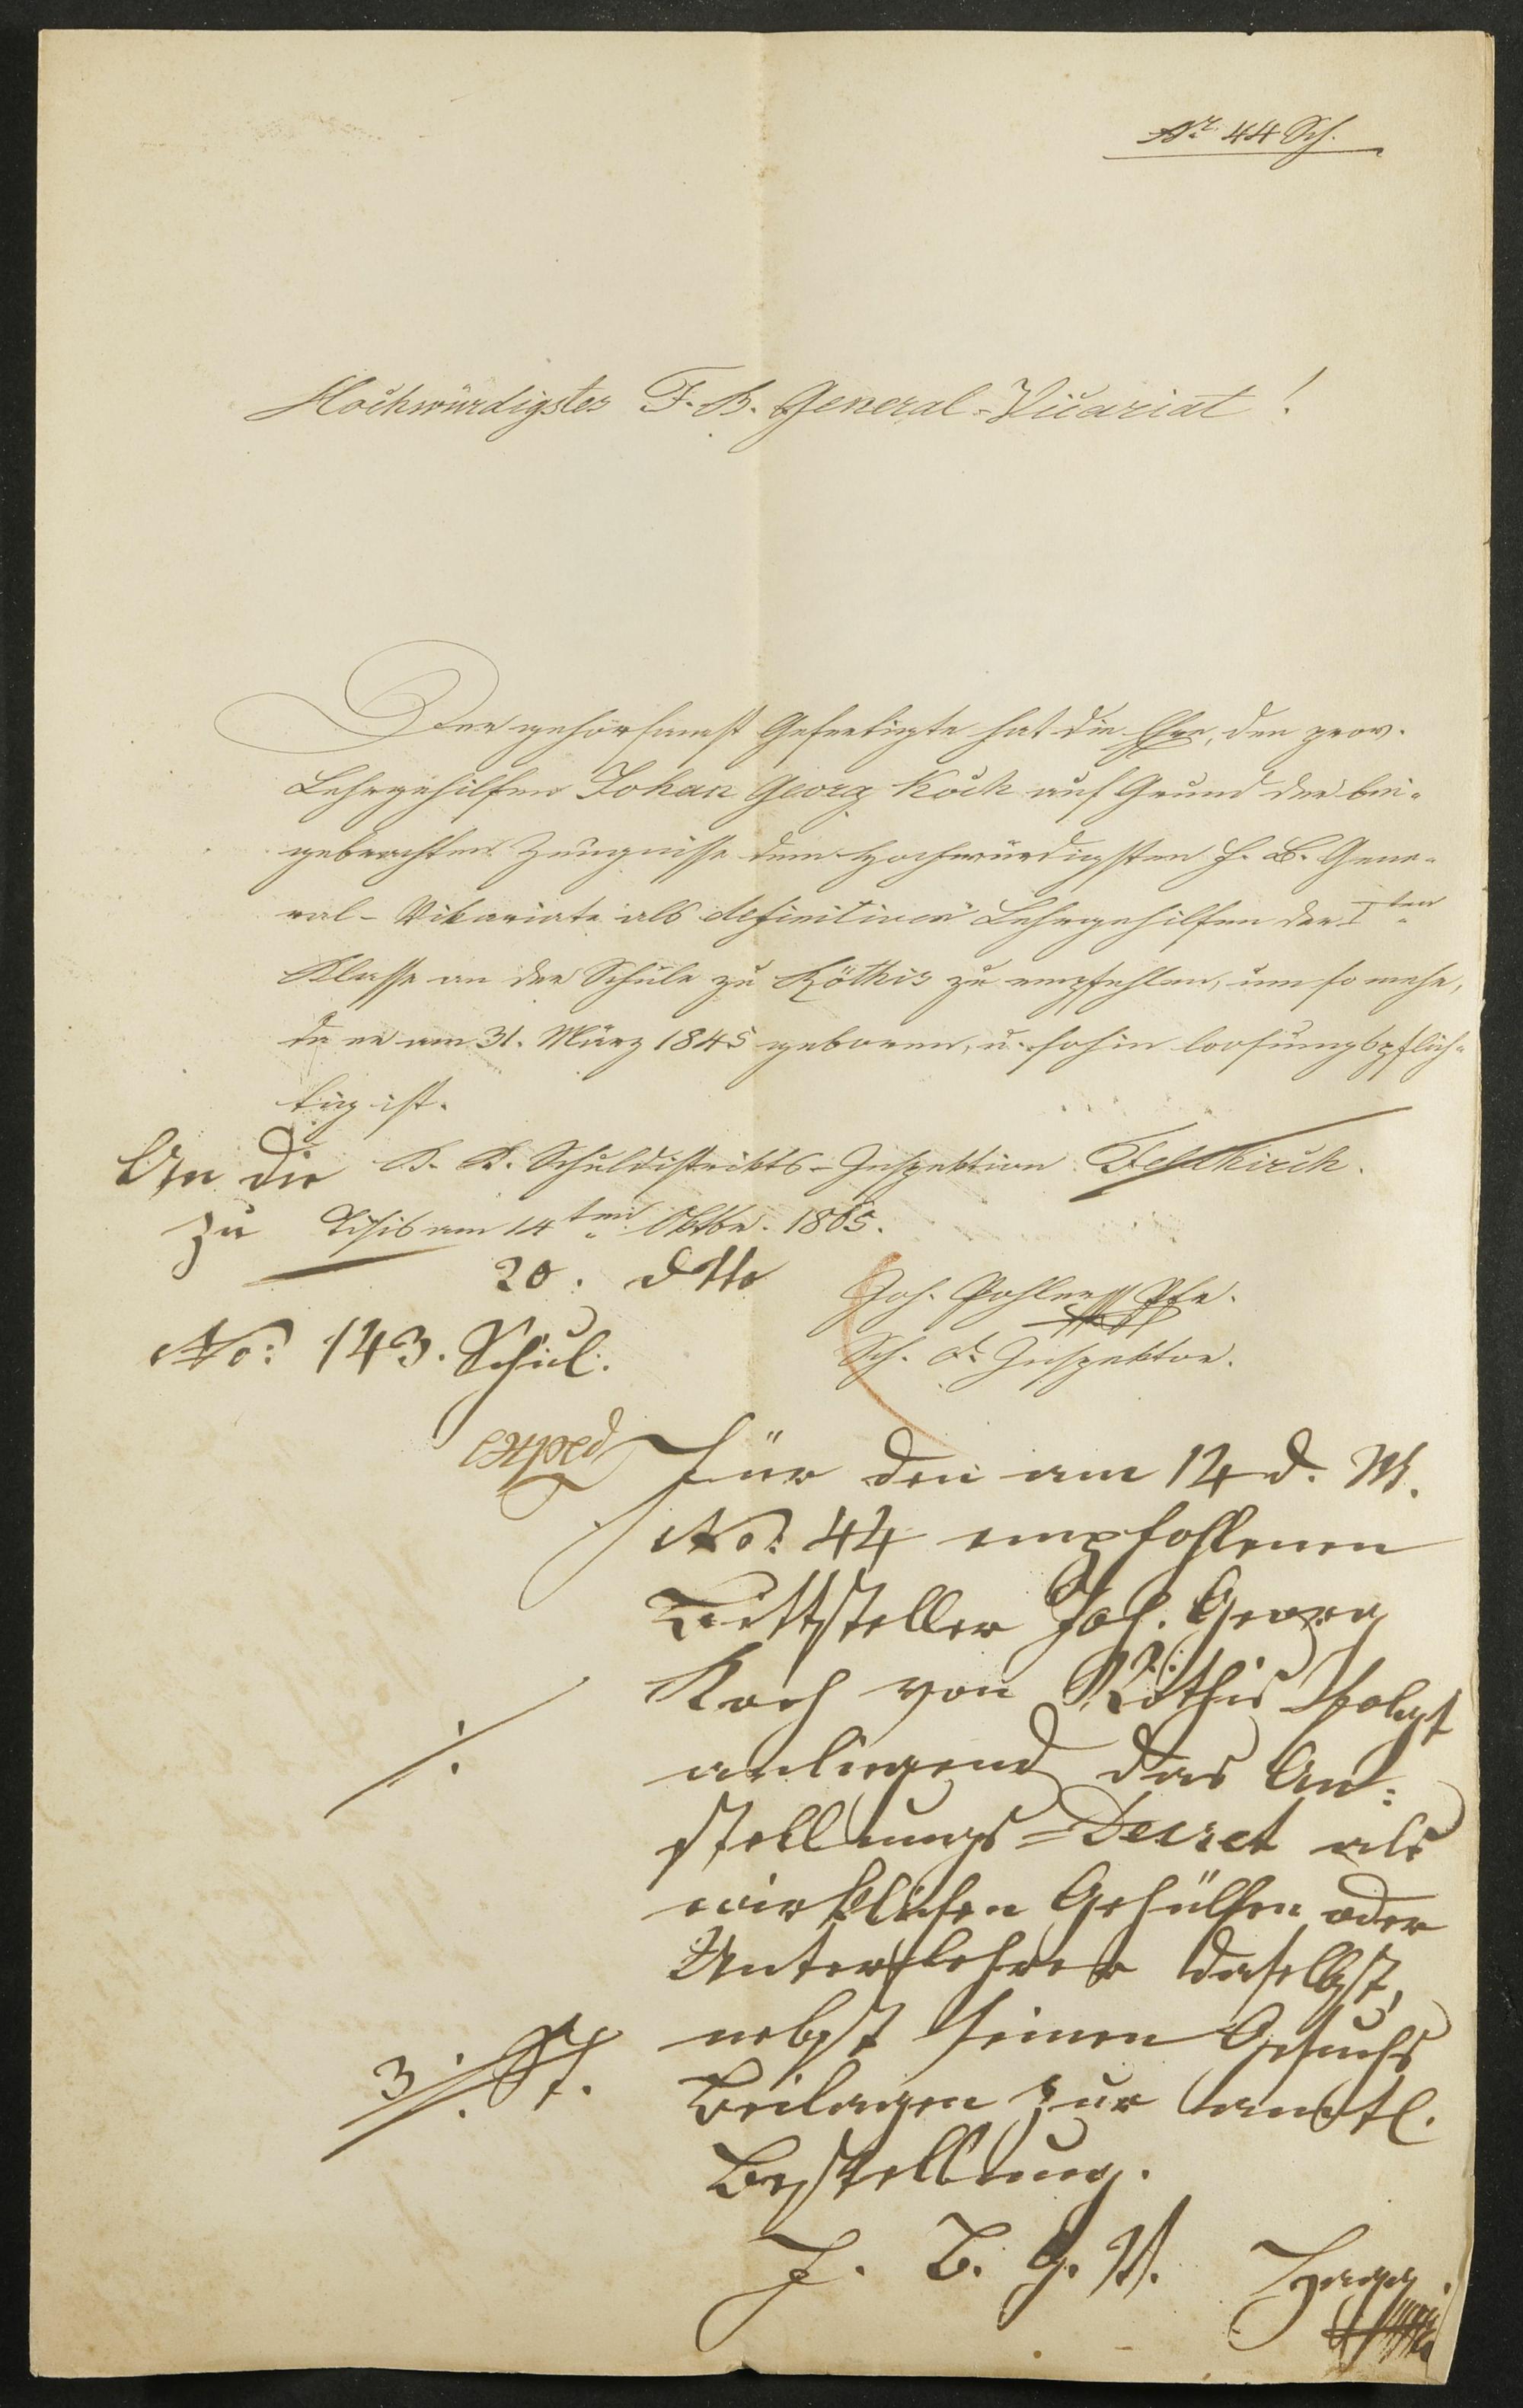 Nr. 44 Sch.
Hochwürdigstes F. B. General-Vicariat!
Der gehorsamst Gefertigte hat die Ehre, den prov.
Lehrgehilfen Johan Georg Koch auf Grund der bei-
gebrachten Zeugnisse dem Hochwürdigsten F. B. Gene-
ral-Vikariate als definitiven Lehrgehilfen der Iten
Klasse an der Schule zu Röthis zu empfehlen, um so mehr,
da er am 31. März 1845 geboren, u. sohin loosungspflich-
tig ist.
An die K. K. Schuldistrikts-Inspektion Feldkirch.
zu Tisis am 14ten Oktbr. 1865.
20. dtto
Joh. Pfr.
No: 143. Schul.
Sch. d. Inspektor.
exped
Für den am 14 d. M.
No: 44 empfohlenen
Bittsteller Joh. Georg
Koch von Röthis folgt
./.
anliegend das An=
stellungs=Decret als
wirklichen Gehülfen oder
Unterlehrer daselbst,
nebst seinen Gesuchs
3 ./. St.
Beilagen zur amtl.
Bestellung.
F. B. G. V.